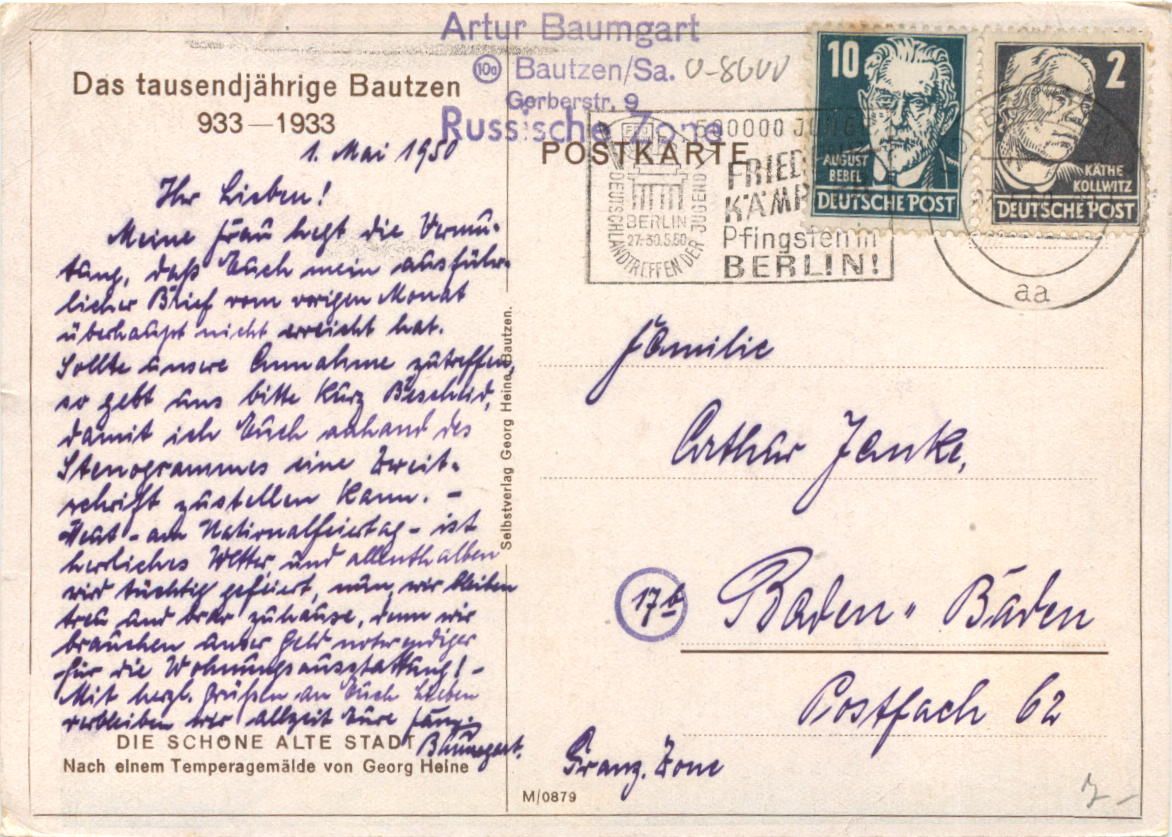 Artur Baumgart
10a Bautzen/Sa. O-8600
Gerberstr. 9
Russische Zone
Das tausendjährige Bautzen
933—1933
1. Mai 1950
Ihr Lieben!
Meine Frau hegt die Vermu-
tung, daß Euch mein ausführ-
licher Brief vom vorigen Monat
überhaupt nicht erreicht hat.
Sollte unsere Annahme zutreffen,
so gebt uns bitte kurz Bescheid,
damit ich Euch anhand des
Stenogrammes eine Zweit-
schrift zustellen kann. –
Heut – am Nationalfeiertag – ist
herrliches Wetter und allenthalben
wird tüchtig gefeiert, nun, wir bleiben
treu und brav zuhause, denn wir
brauchen unser Geld notwendiger
für die Wohnungsausstattung! –
Mit herzl. Grüßen an Euch Lieben
verbleiben wir allzeit Eure
DIE SCHÖNE ALTE STADT
Nach einem Temperagemälde von Georg Heine
Selbstverlag Georg Heine, Bautzen.
M/0879
POSTKARTE
FDJ
BERLIN
27.-30.5.50
DEUTSCHLANDTREFFEN DER JUGEND
500000
Pfingsten in
BERLIN!
10
AUGUST
BEBEL
DEUTSCHE POST
2
KÄTHE
KOLLWITZ
DEUTSCHE POST
aa
Familie
Arthur Janke,
17b Baden-Baden
Postfach 62
Franz. Zone